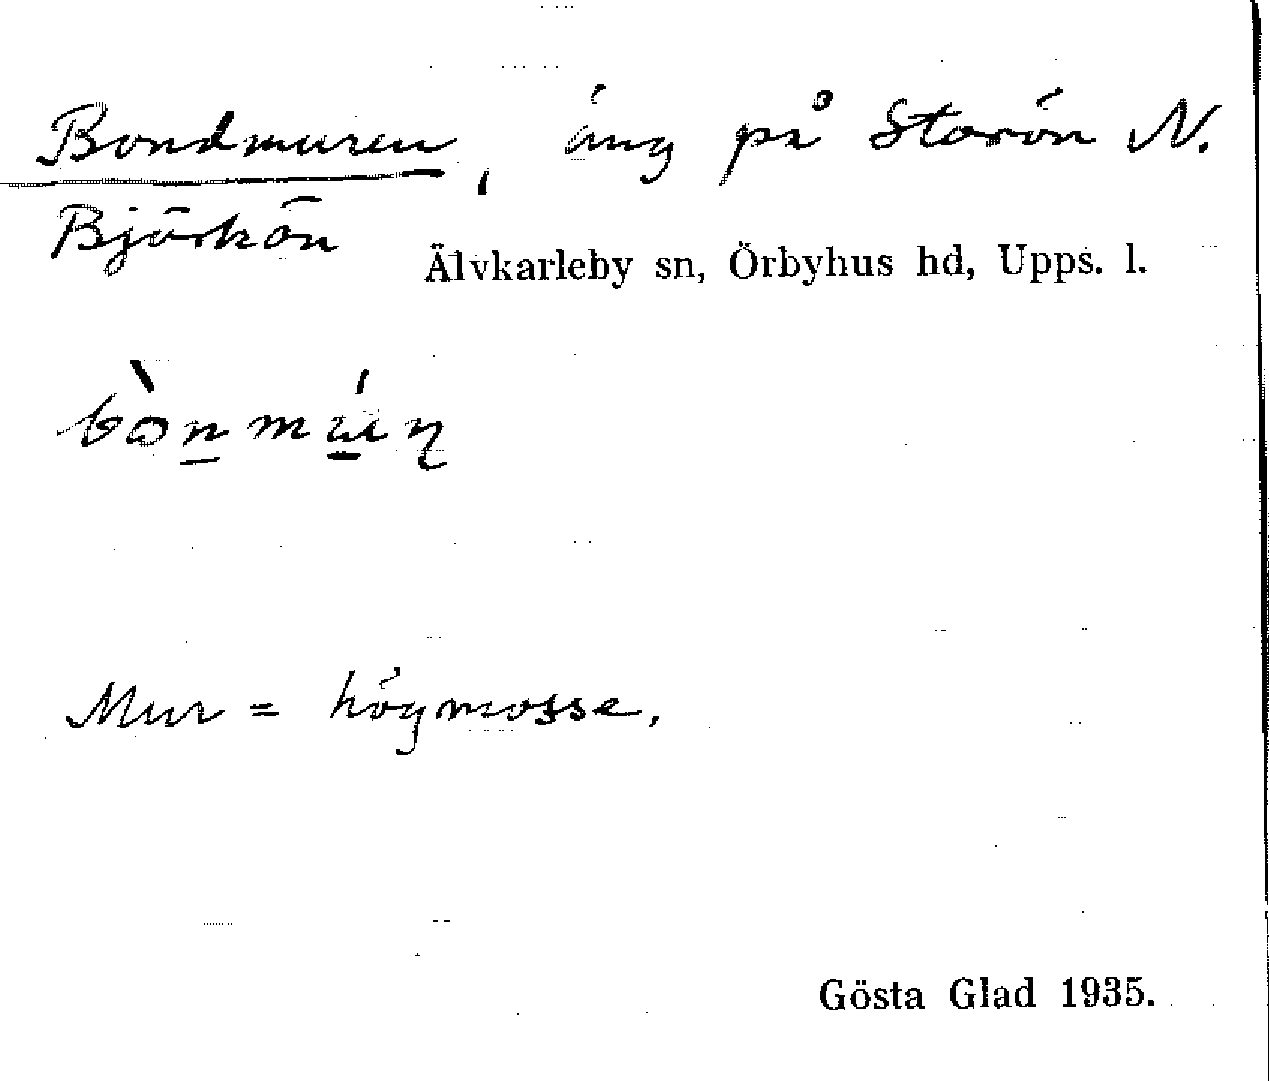 Bondmuren, äng på Storön N.
Björkön
Älvkarleby sn, Örbyhus hd, Upps. l.
bònmúɳ
Mur = högmosse.
Gösta Glad 1935.